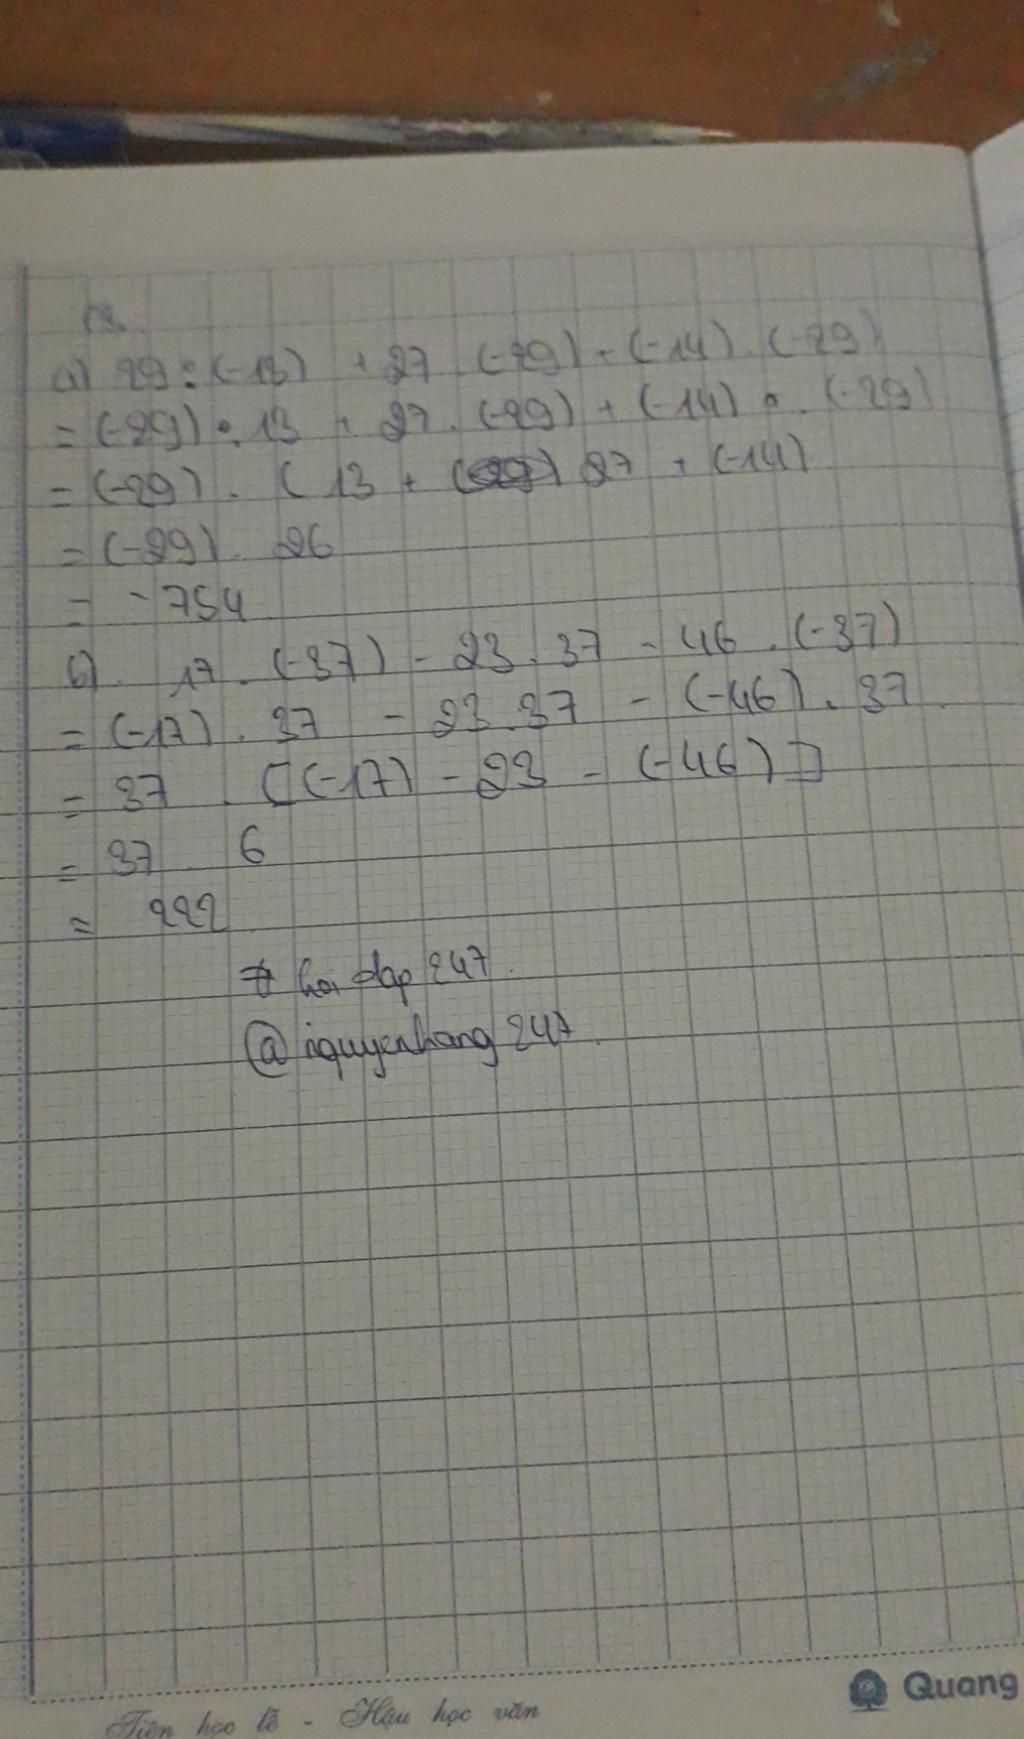 a) 29 : (-13) + 27 . (-29) + (-14) . (-29)
= (-29) . 13 + 27 . (-29) + (-14) . (-29)
= (-29) . ( 13 + 27 + (-14)
= (-29) . 26
= -754
b) 17 . (-37) - 23 . 37 - 46 . (-37)
= (-17) . 37 - 23.37 - (-46) . 37
= 37 . [(-17) - 23 - (-46)]
= 37 6
= 222
# hoi dap 247.
@nguyenhang247.
Quang
Tiên học lễ - Hậu học văn